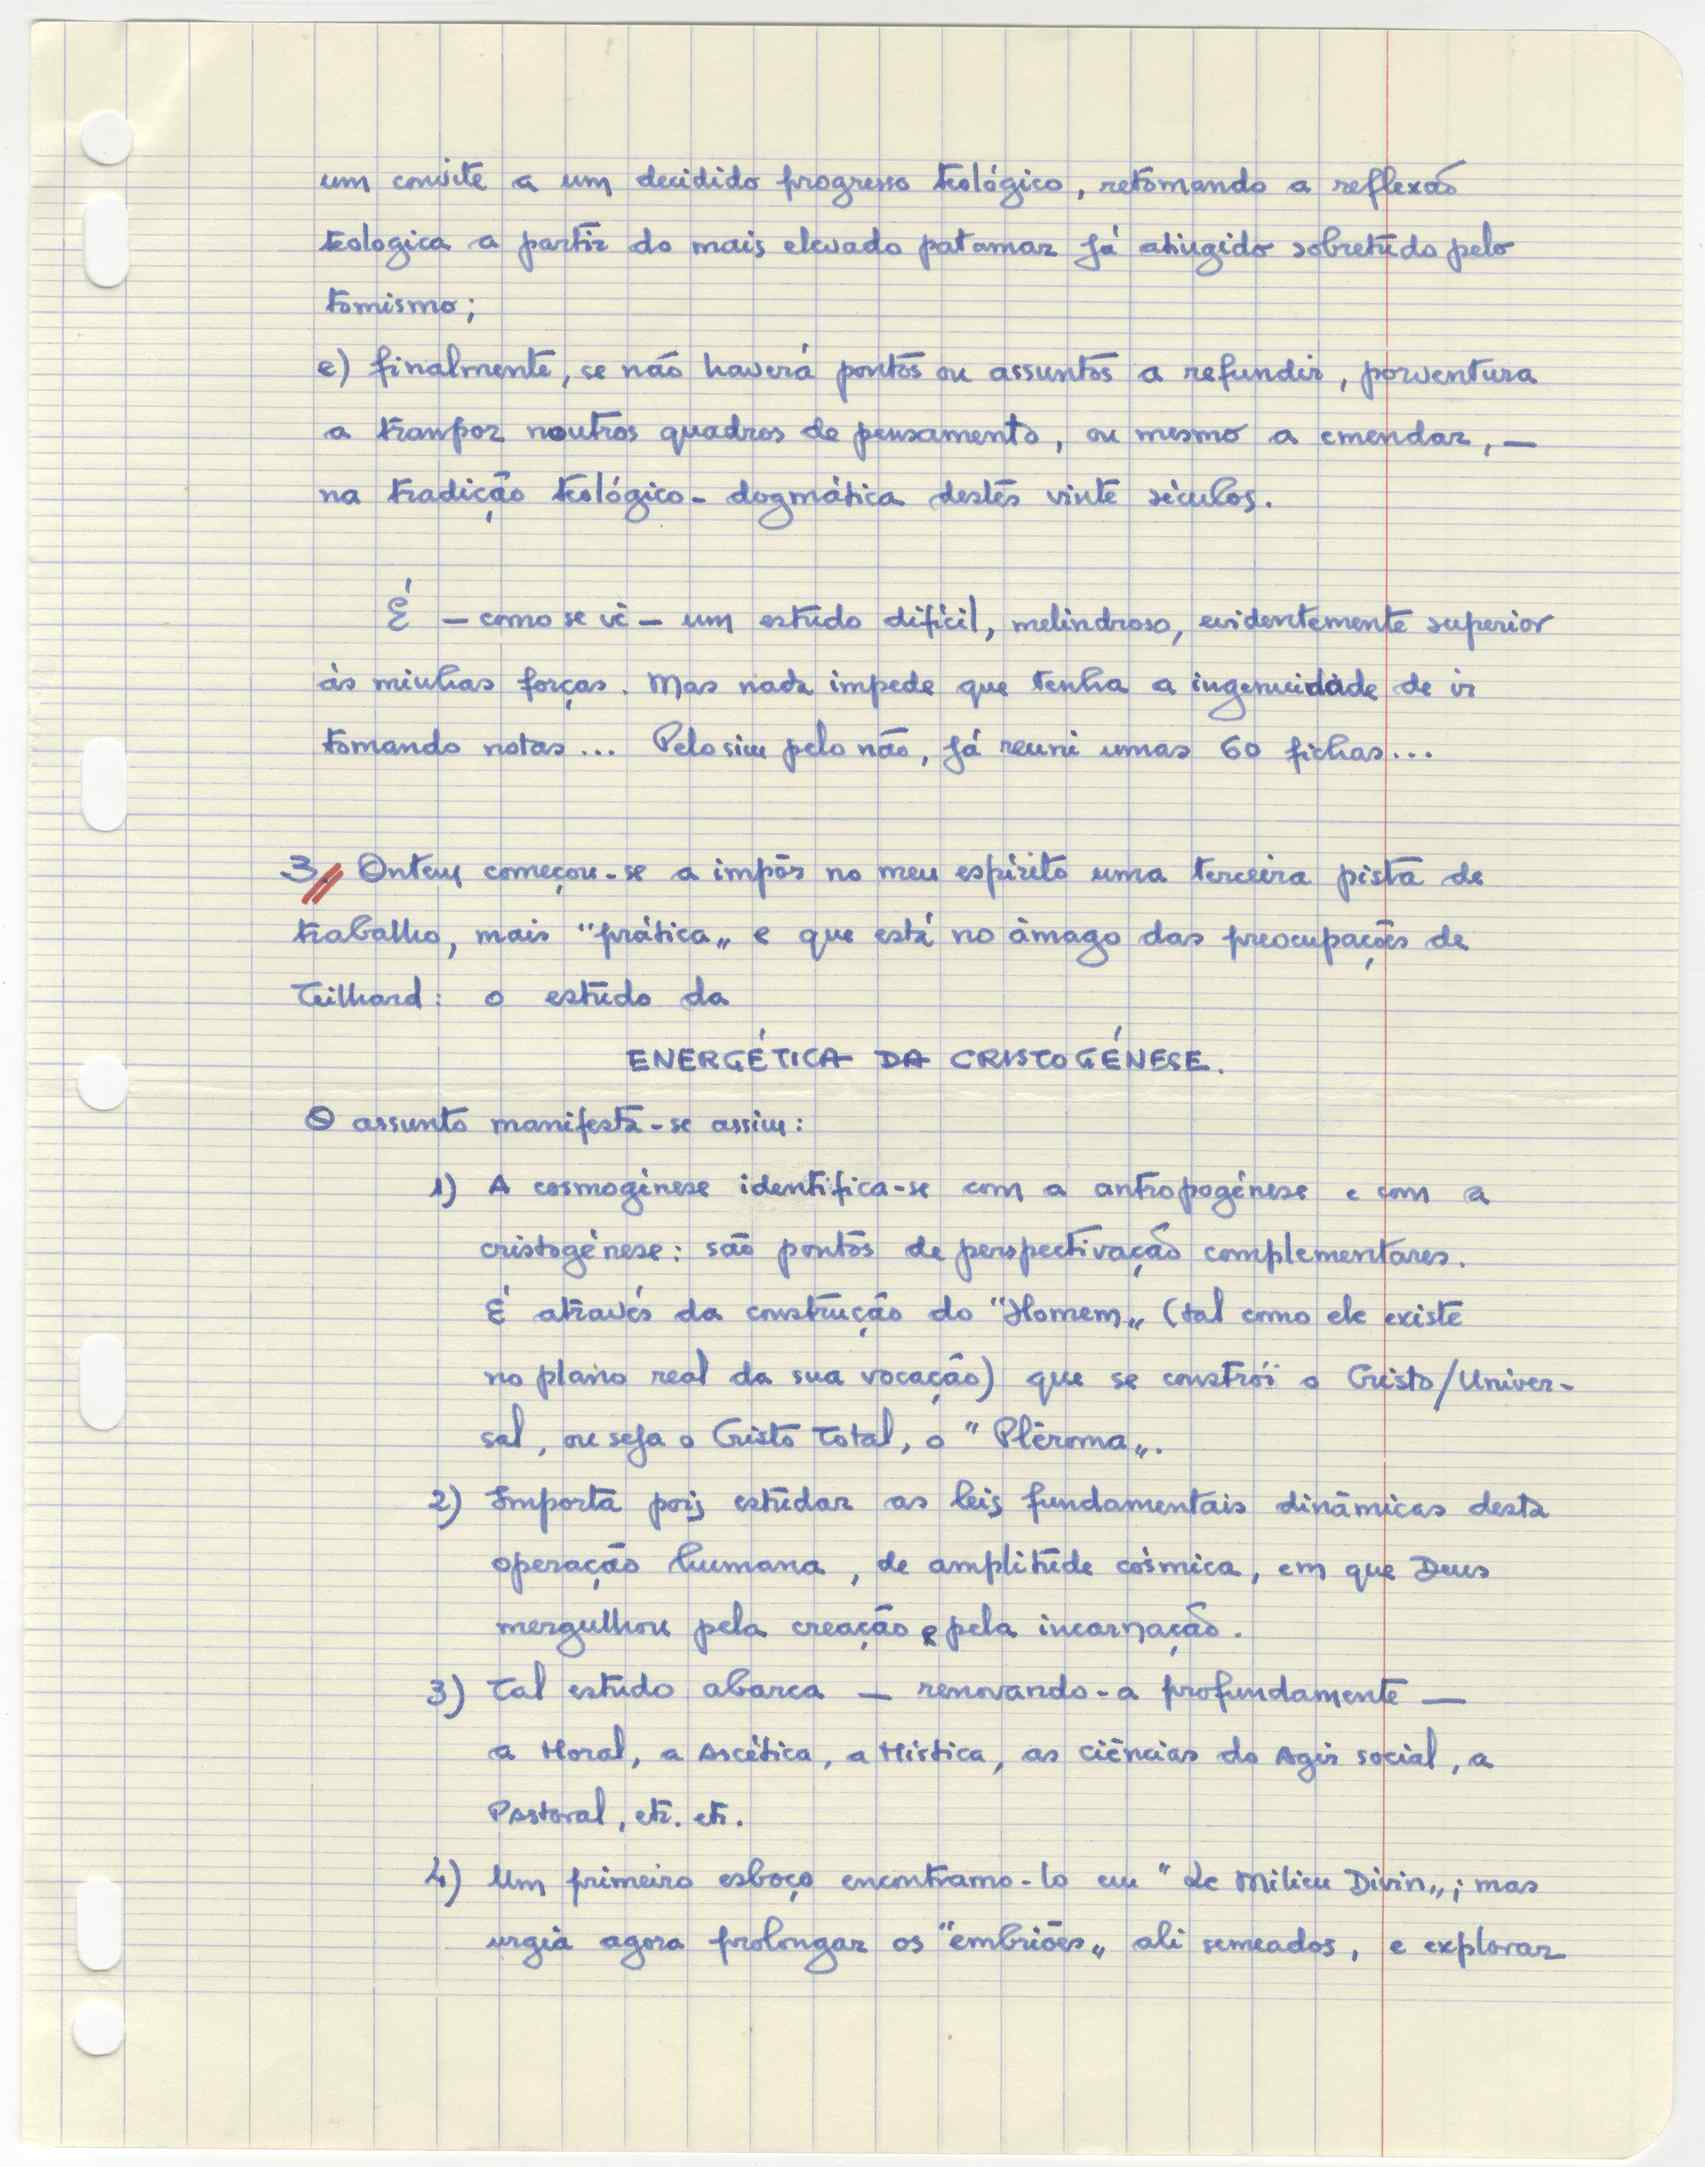 um convite a um decidido progresso teológico, retomando a reflexão
teologica a partir do mais elevado patamar já atingido sobretudo pelo
tomismo;
e) finalmente, se não haverá pontos ou assuntos a refundir, porventura
a transpor noutros quadros de pensamento, ou mesmo a emendar, —
na tradição teológico-dogmática destes vinte séculos.
É — como se vê — um estudo difícil, melindroso, evidentemente superior
às minhas forças. Mas nada impede que tenha a ingenuidade de ir
tomando notas... Pelo sim pelo não, já reuni umas 60 fichas...
3. Ontem começou-se a impôr no meu espírito uma terceira pista de
trabalho, mais "prática" e que está no âmago das preocupações de
Teilhard: o estudo da
ENERGÉTICA DA CRISTOGÉNESE.
O assunto manifesta-se assim:
1) A cosmogénese identifica-se com a antropogénese e com a
cristogénese: são pontos de perspectivação complementares.
É através da construção do "Homem" (tal como ele existe
no plano real da sua vocação) que se constrói o Cristo/Univer-
sal, ou seja o Cristo Total, o "Plêroma".
2) Importa pois estudar as leis fundamentais dinâmicas desta
operação humana, de amplitude cósmica, em que Deus
mergulhou pela creação e pela incarnação.
3) Tal estudo abarca — renovando-a profundamente —
a Moral, a Ascética, a Mística, as ciências do Agir social, a
Pastoral, etc. etc.
4) Um primeiro esboço encontramo-lo em "Le Milieu Divin"; mas
urgia agora prolongar os "embriões" ali semeados, e explorar